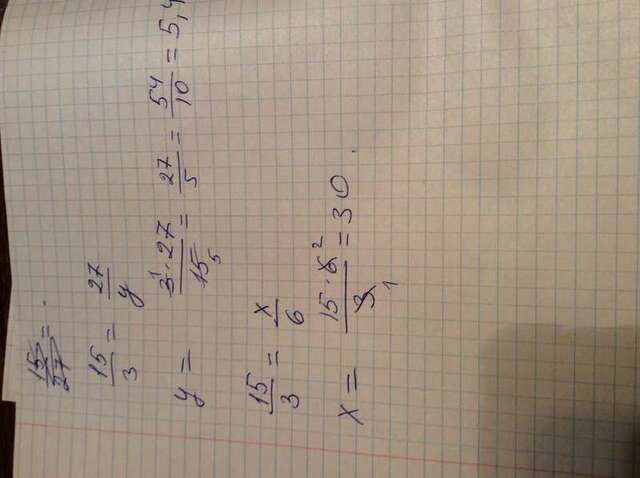 15/27 = .
15/3 = 27/y
y = 3¹·27/15₅ = 27/5 = 54/10 = 5,4
15/3 = x/6
x = 15·6²/3₁ = 30.